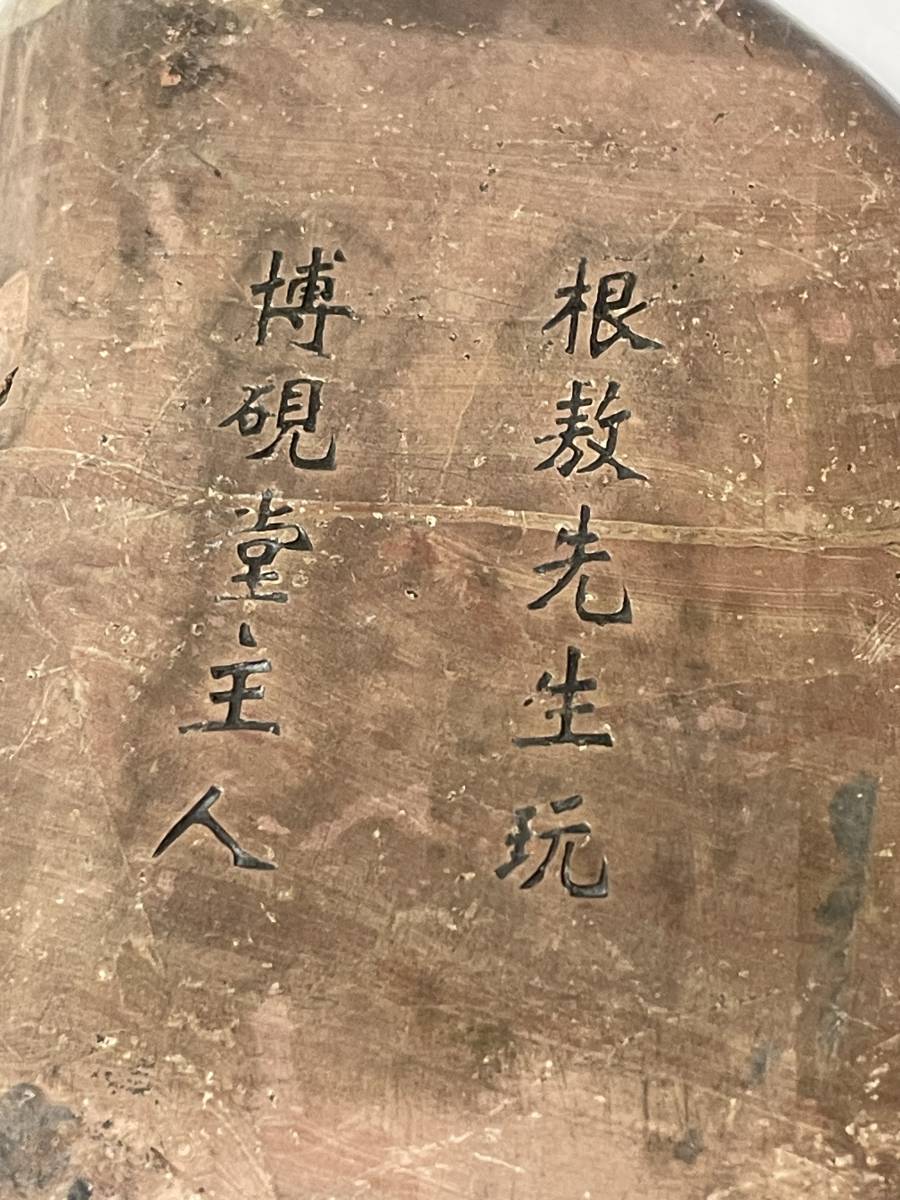 根敖先生玩
博硯堂主人